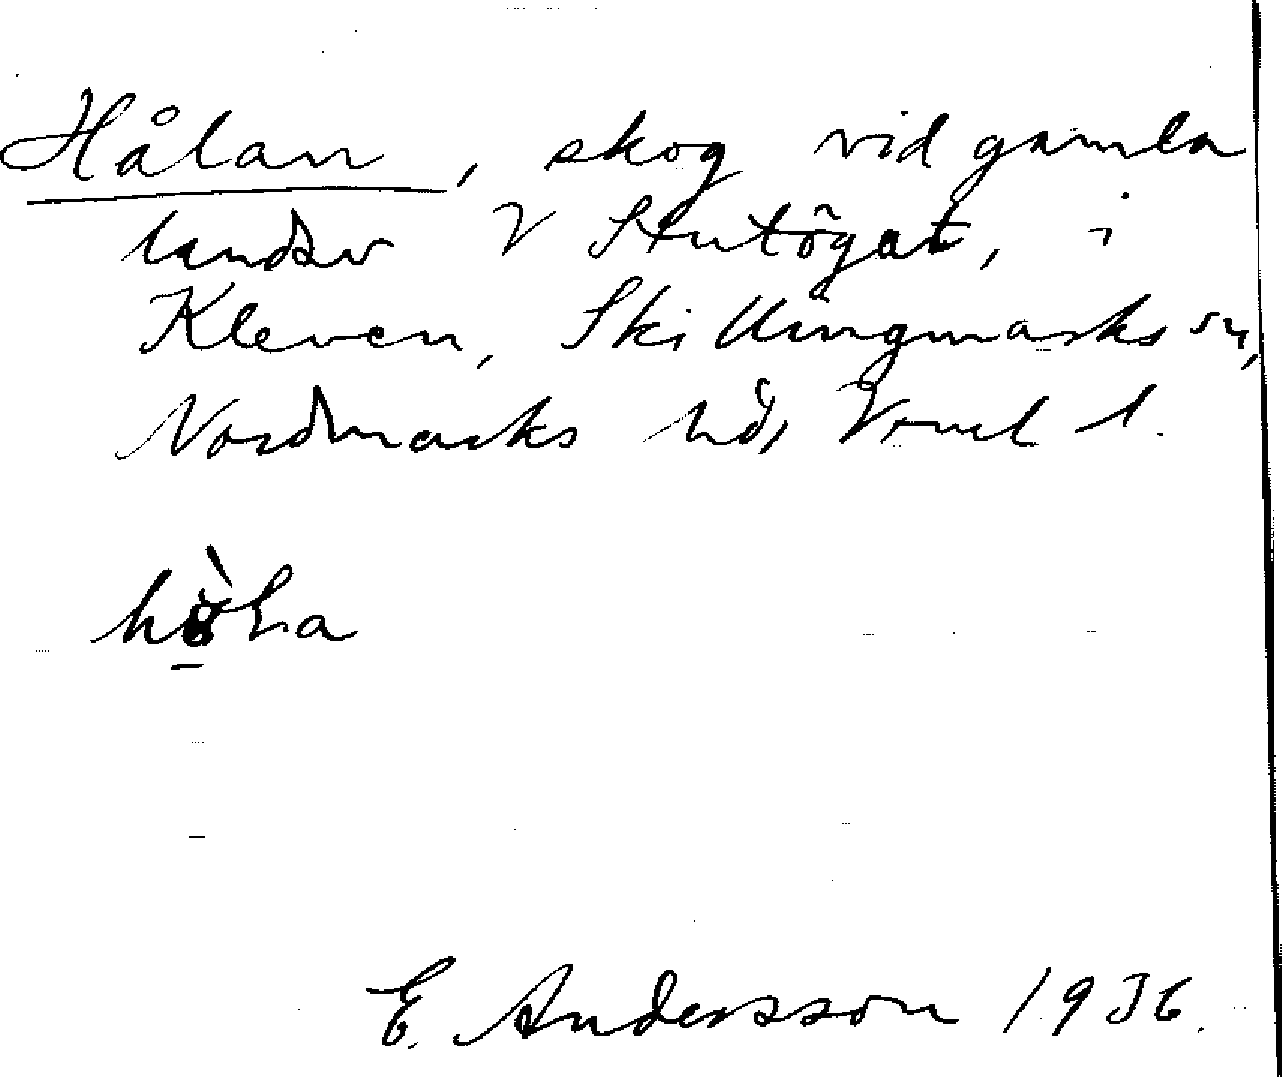 Hålan, skog vid gamla
landsv V Stutögat, i
Kleven, Skillingmarks sn,
Nordmarks hd, Vrml l.
E. Andersson 1936.